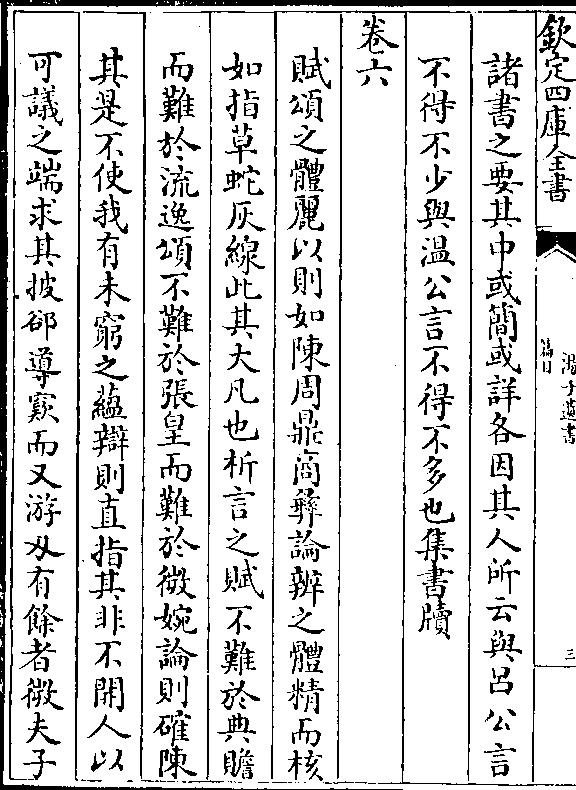 欽定四庫全書
湯子遺書
篇目
三
諸書之要其中或簡或詳各因其人所云與呂公言
不得不少與温公言不得不多也集書牘
卷六
賦頌之體麗以則如陳周鼎商彝論辨之體精而核
如指草蛇灰線此其大凡也析言之賦不難於典贍
而難於流逸頌不難於張皇而難於微婉論則確陳
其是不使我有未窮之蘊辯則直指其非不開人以
可議之端求其披郤導窾而又游刃有餘者微夫子